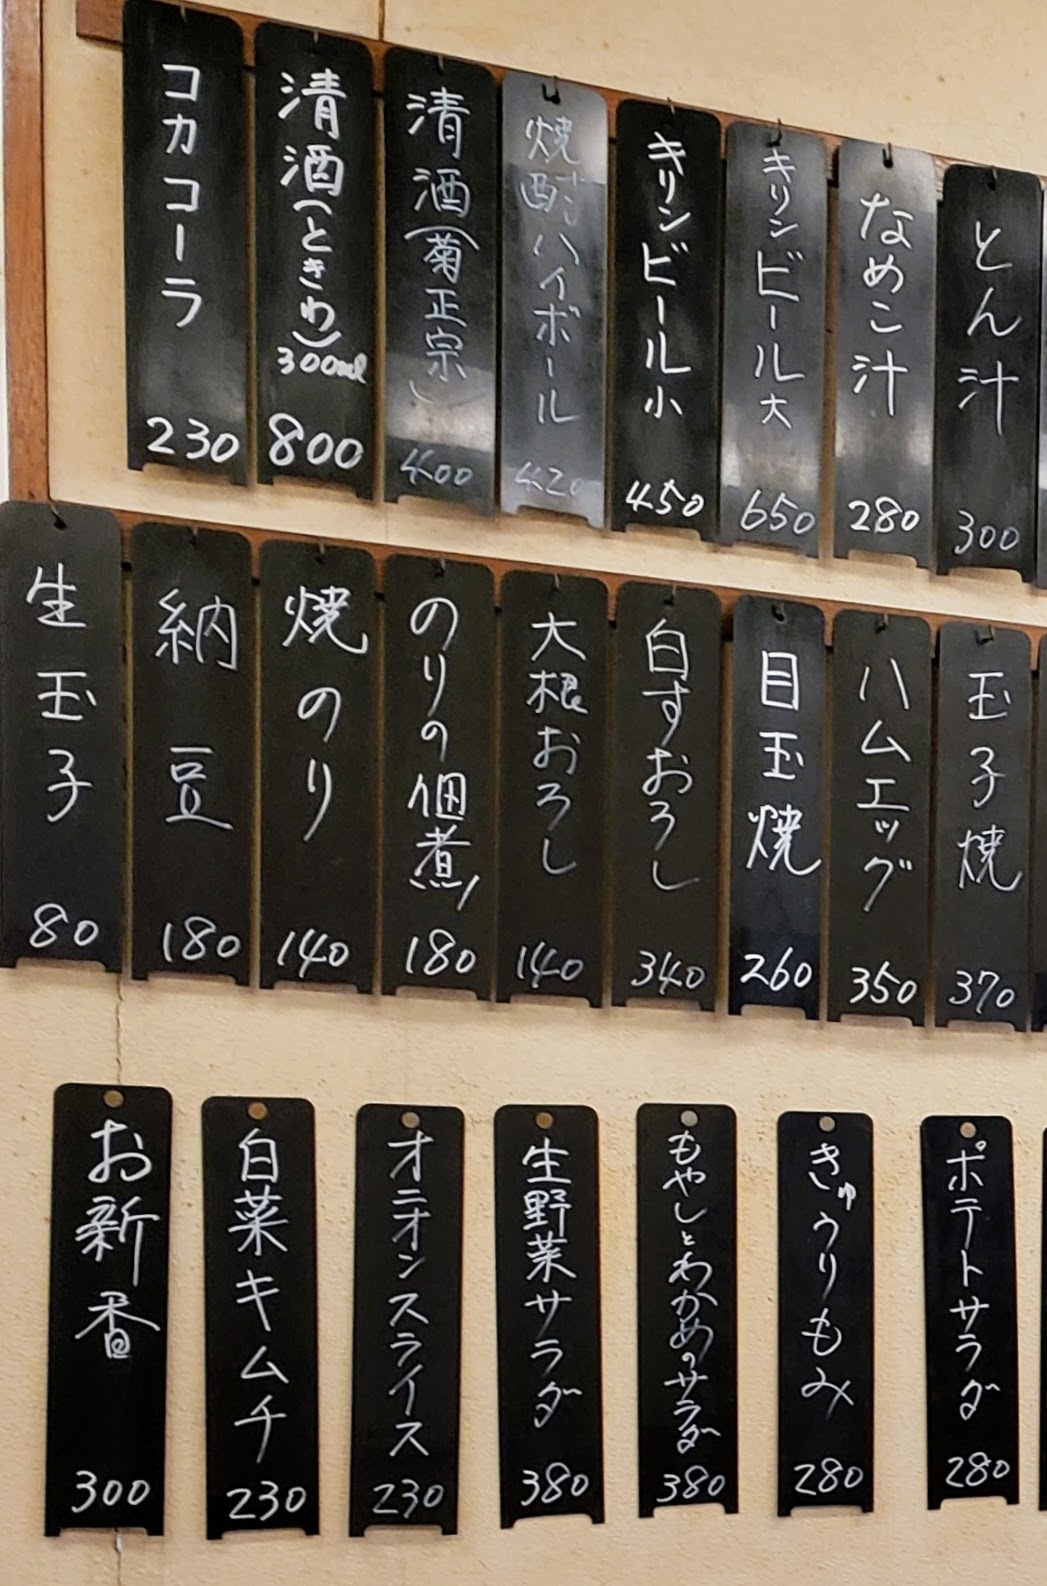 とん汁
300
なめこ汁
280
キリンビール大
650
キリンビール小
450
焼酎ハイボール
420
清酒(菊正宗)
400
清酒(ときわ)
300ml
800
コカコーラ
230
玉子焼
370
ハムエッグ
350
目玉焼
260
白すおろし
340
大根おろし
140
のりの佃煮
180
焼のり
140
納豆
180
生玉子
80
ポテトサラダ
280
きゅうりもみ
280
もやしとわかめのサラダ
380
生野菜サラダ
380
オニオンスライス
230
白菜キムチ
230
お新香
300